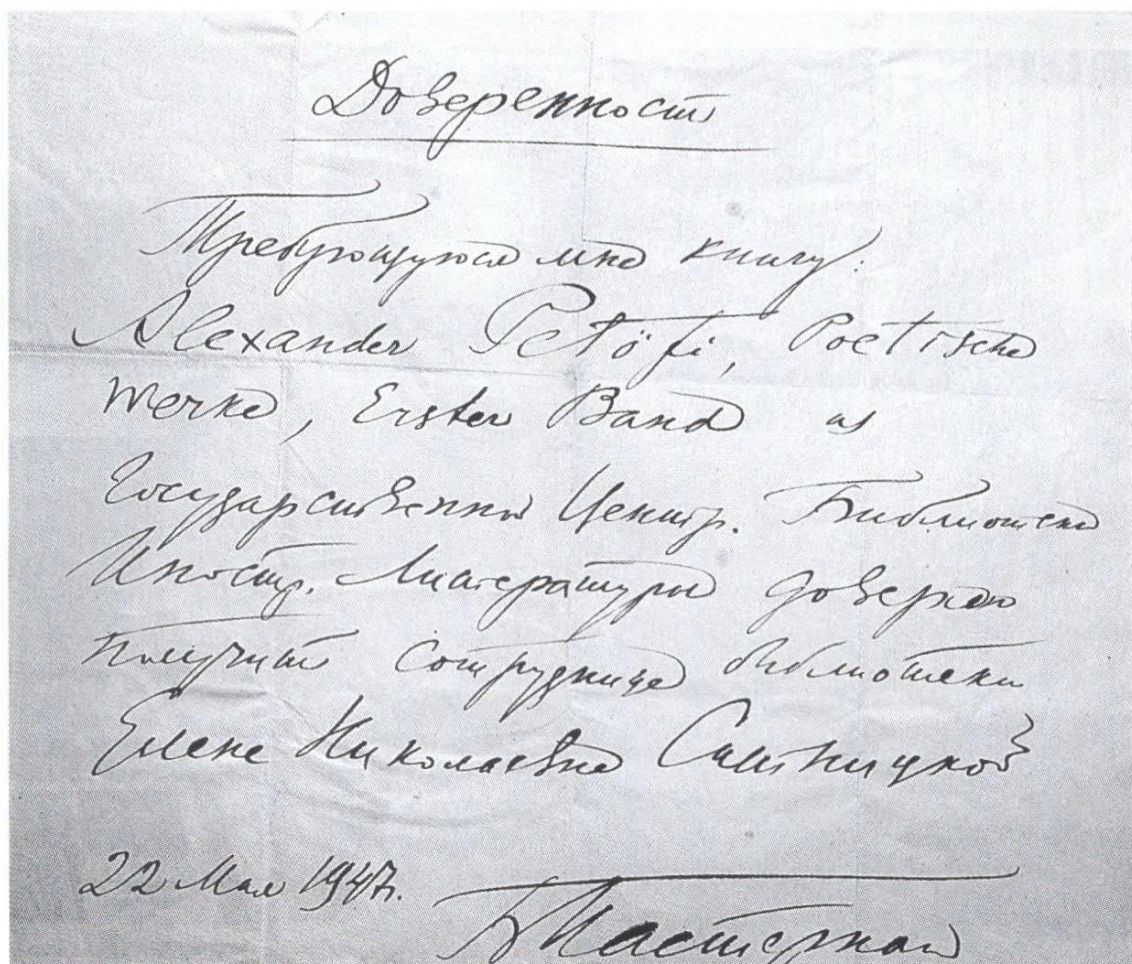 Доверенность
Требующуюся мне книгу:
Alexander Petöfi, Poetische
Werke, Erster Band из
Государственной Центр. Библиотеки
Иностр. Литературы доверяю
получить сотруднице библиотеки
Елене Николаевне
22 Мая 1947.
БПастернак